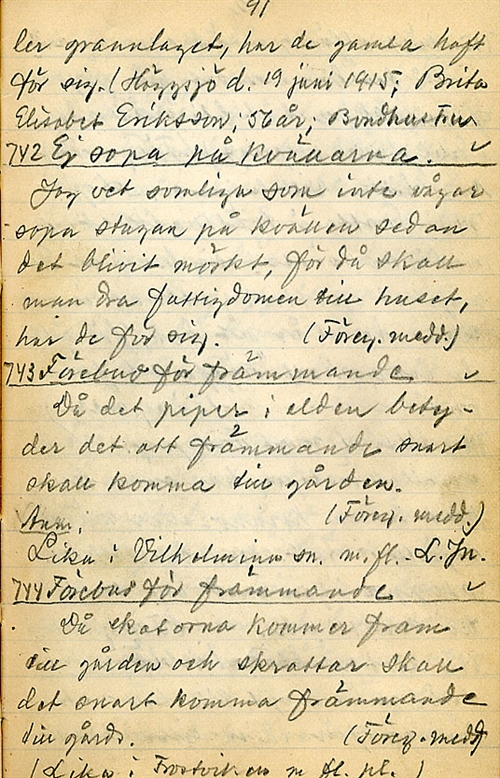 91
ler grannlaget, har de gamla haft
för sig. (Häggsjö d. 19 juni 1915; Brita
Elisabet Eriksson; 56 år; Bondhustru
742 Ej sopa på kvällarna.
Jag vet somliga som inte vågar
sopa stugan på kvällen sedan
det blivit mörkt, för då skall
man dra fattigdomen till huset,
har de för sig. (Föreg. medd.)
743 Förebud för främmande
Då det piper i elden bety-
der det att främmande snart
skall komma till gården.
Anm. (Föreg. medd.)
Lika i Vilhelmina sn. m. fl. - L. Jn.
744 Förebud för främmande
Då skatorna kommer fram
till gården och skrattar skall
det snart komma främmande
till gårds. (Föreg. medd)
(Lika i Frostviken m fl pl.)